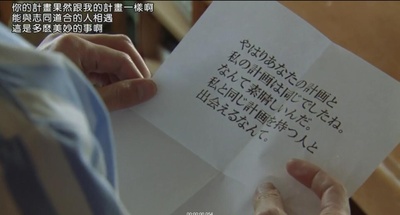 你的計畫果然跟我的計畫一樣啊
能與志同道合的人相遇
這是多麼美妙的事啊
やはりあなたの計画と
私の計画は同じでしたね。
なんて素晴しいんだ。
私と同じ計画を持つ人と
出会えるなんて。